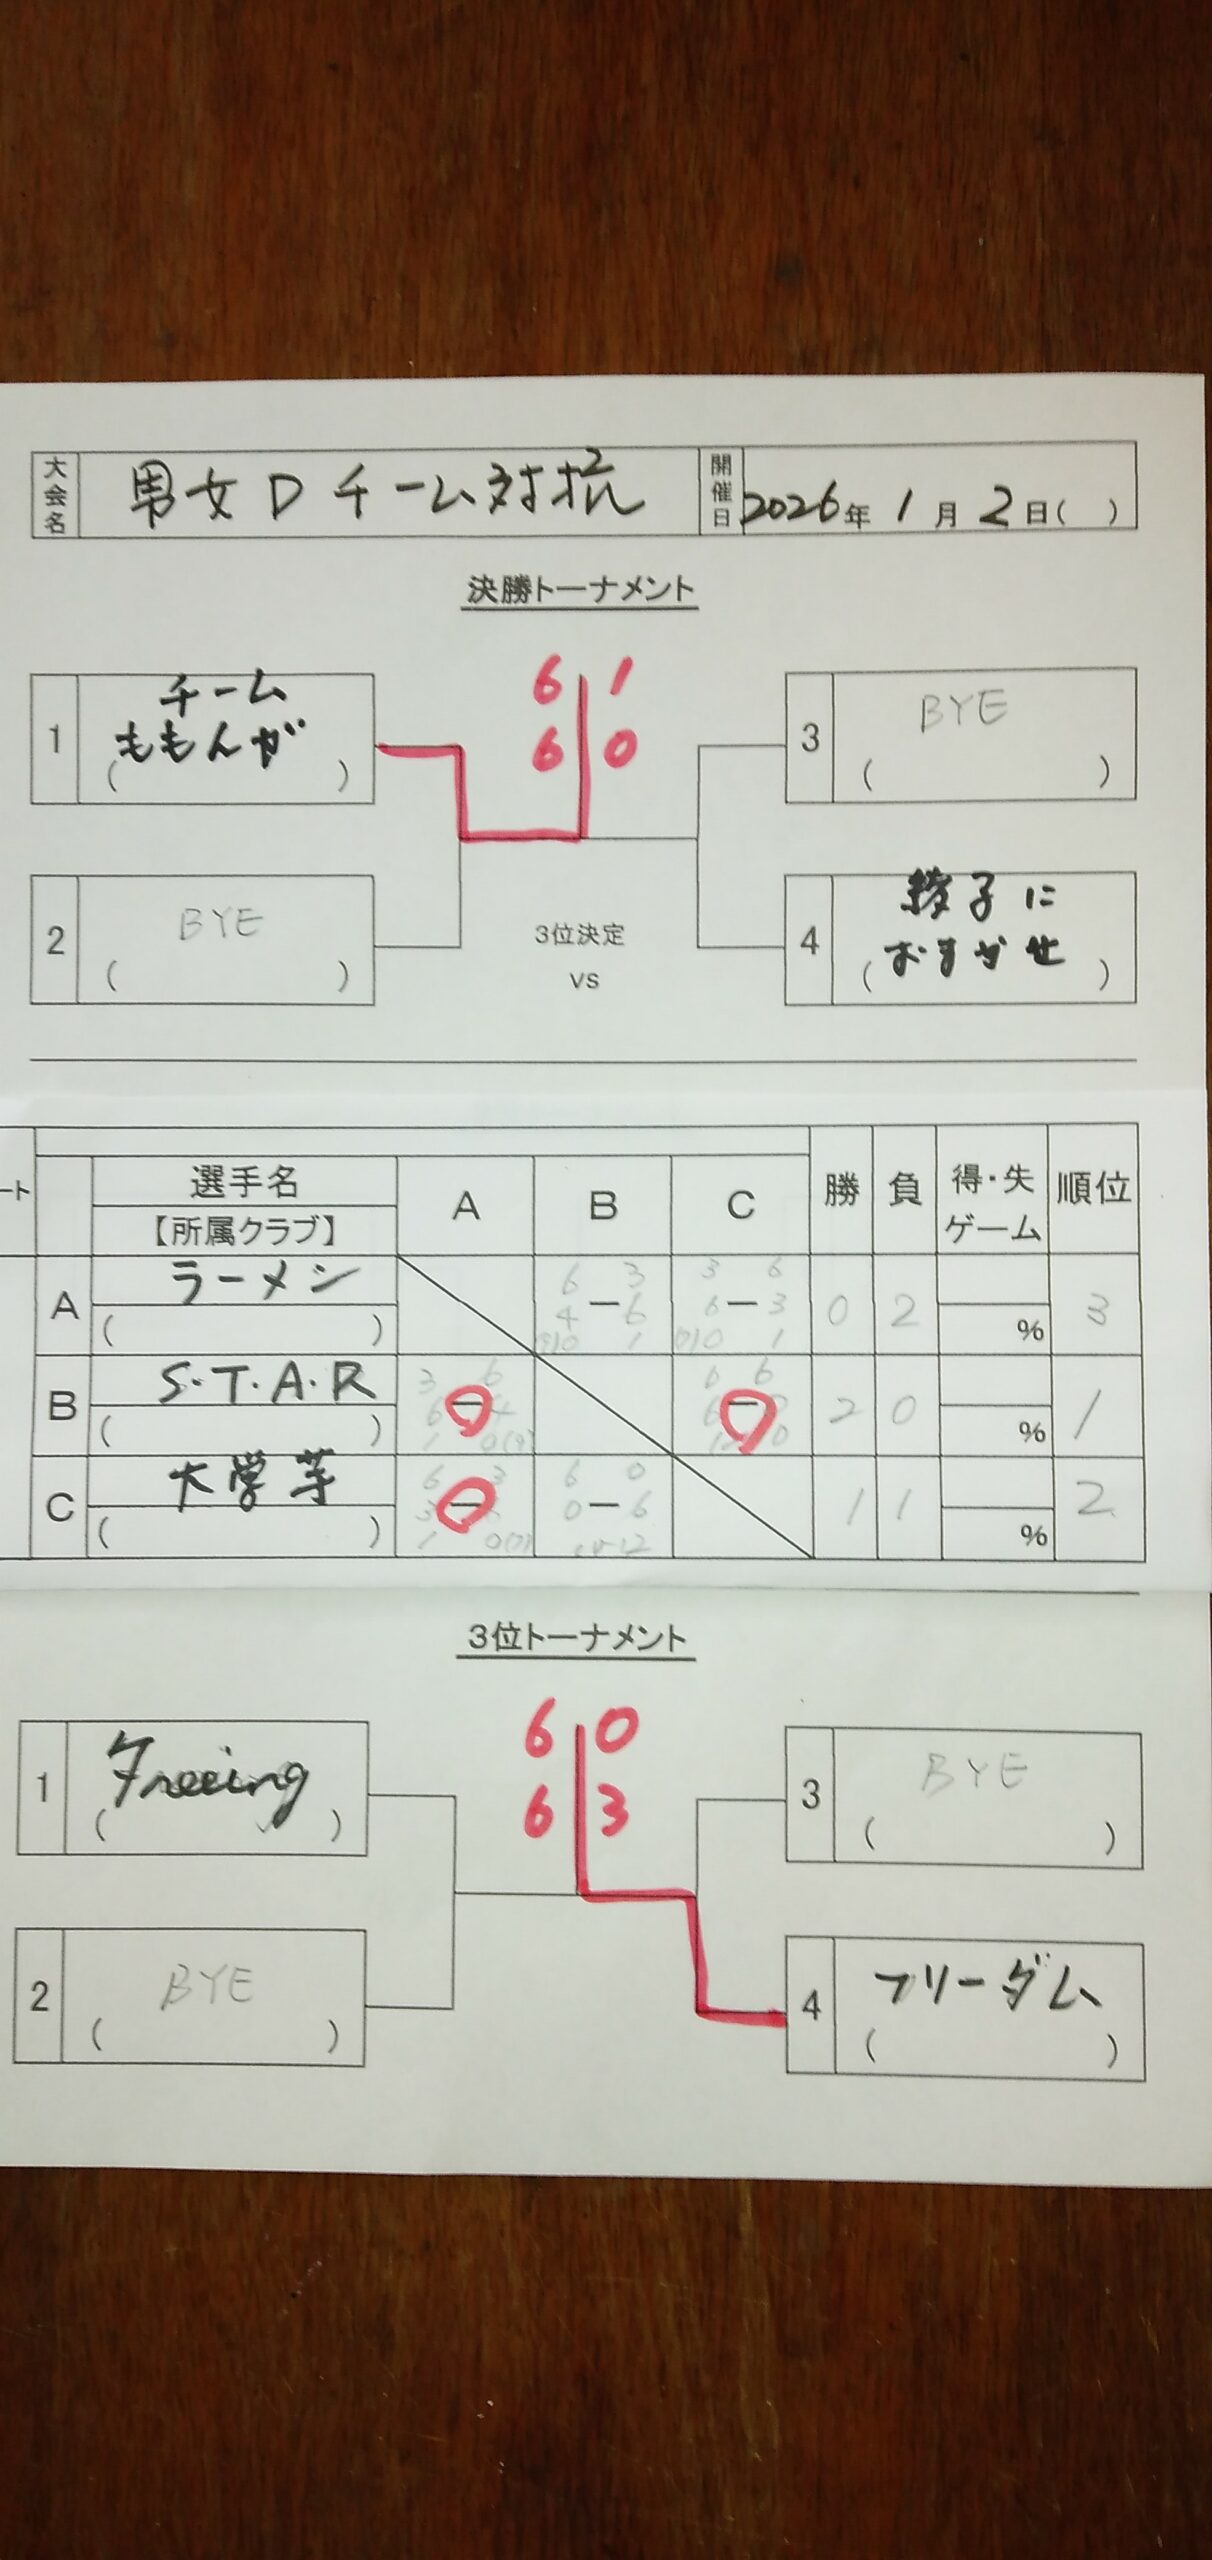 大会名 男女D チーム対抗 開催日 2026年 1月 2日( )
決勝トーナメント
6 1
6 0
1 チーム
ももんが
( )
3 BYE
( )
2 BYE
( )
3位決定
vs
4 綾子に
おまかせ
( )
ート 選手名 A B C 勝 負 得・失 順位
【所属クラブ】 ゲーム
A ラーメン 6 3 3 6 0 2 3
4 - 6 6 - 3
( ) 0 1 0 1 %
B S.T.A.R 3 6 6 2 0 1
( ) 1 0(9) %
C 大学芋 6 3 6 0 1 1 2
0 - 6
( ) 1 %
3位トーナメント
6 0
6 3
1 Freeing
( )
3 BYE
( )
2 BYE
( )
4 フリーダム
( )